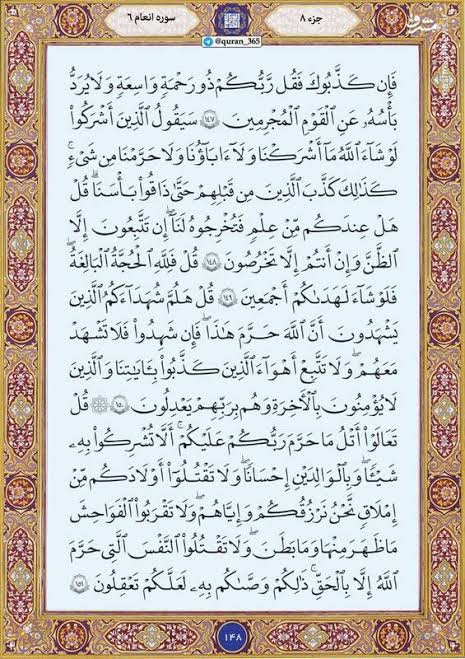 جزء ۸
سوره انعام ۶
@quran_365
فَإِن كَذَّبُوكَ فَقُل رَّبُّكُمْ ذُو رَحْمَةٍ وَاسِعَةٍ وَلَا يُرَدُّ
بَأْسُهُۥ عَنِ ٱلْقَوْمِ ٱلْمُجْرِمِينَ ١٤٧ سَيَقُولُ ٱلَّذِينَ أَشْرَكُوا۟
لَوْ شَآءَ ٱللَّهُ مَآ أَشْرَكْنَا وَلَآ ءَابَآؤُنَا وَلَا حَرَّمْنَا مِن شَىْءٍ ۚ
كَذَٰلِكَ كَذَّبَ ٱلَّذِينَ مِن قَبْلِهِمْ حَتَّىٰ ذَاقُوا۟ بَأْسَنَا ۗ قُلْ
هَلْ عِندَكُم مِّنْ عِلْمٍ فَتُخْرِجُوهُ لَنَآ ۖ إِن تَتَّبِعُونَ إِلَّا
ٱلظَّنَّ وَإِنْ أَنتُمْ إِلَّا تَخْرُصُونَ ١٤٨ قُلْ فَلِلَّهِ ٱلْحُجَّةُ ٱلْبَٰلِغَةُ ۖ
فَلَوْ شَآءَ لَهَدَىٰكُمْ أَجْمَعِينَ ١٤٩ قُلْ هَلُمَّ شُهَدَآءَكُمُ ٱلَّذِينَ
يَشْهَدُونَ أَنَّ ٱللَّهَ حَرَّمَ هَٰذَا ۖ فَإِن شَهِدُوا۟ فَلَا تَشْهَدْ
مَعَهُمْ ۚ وَلَا تَتَّبِعْ أَهْوَآءَ ٱلَّذِينَ كَذَّبُوا۟ بِـَٔايَٰتِنَا وَٱلَّذِينَ
لَا يُؤْمِنُونَ بِٱلْـَٔاخِرَةِ وَهُم بِرَبِّهِمْ يَعْدِلُونَ ١٥٠ ۞ قُلْ
تَعَالَوْا۟ أَتْلُ مَا حَرَّمَ رَبُّكُمْ عَلَيْكُمْ ۖ أَلَّا تُشْرِكُوا۟ بِهِۦ
شَيْـًٔا ۖ وَبِٱلْوَٰلِدَيْنِ إِحْسَٰنًا ۖ وَلَا تَقْتُلُوٓا۟ أَوْلَٰدَكُم مِّنْ
إِمْلَٰقٍ ۖ نَّحْنُ نَرْزُقُكُمْ وَإِيَّاهُمْ ۖ وَلَا تَقْرَبُوا۟ ٱلْفَوَٰحِشَ
مَا ظَهَرَ مِنْهَا وَمَا بَطَنَ ۖ وَلَا تَقْتُلُوا۟ ٱلنَّفْسَ ٱلَّتِى حَرَّمَ
ٱللَّهُ إِلَّا بِٱلْحَقِّ ۚ ذَٰلِكُمْ وَصَّىٰكُم بِهِۦ لَعَلَّكُمْ تَعْقِلُونَ ١٥١
۱۴۸